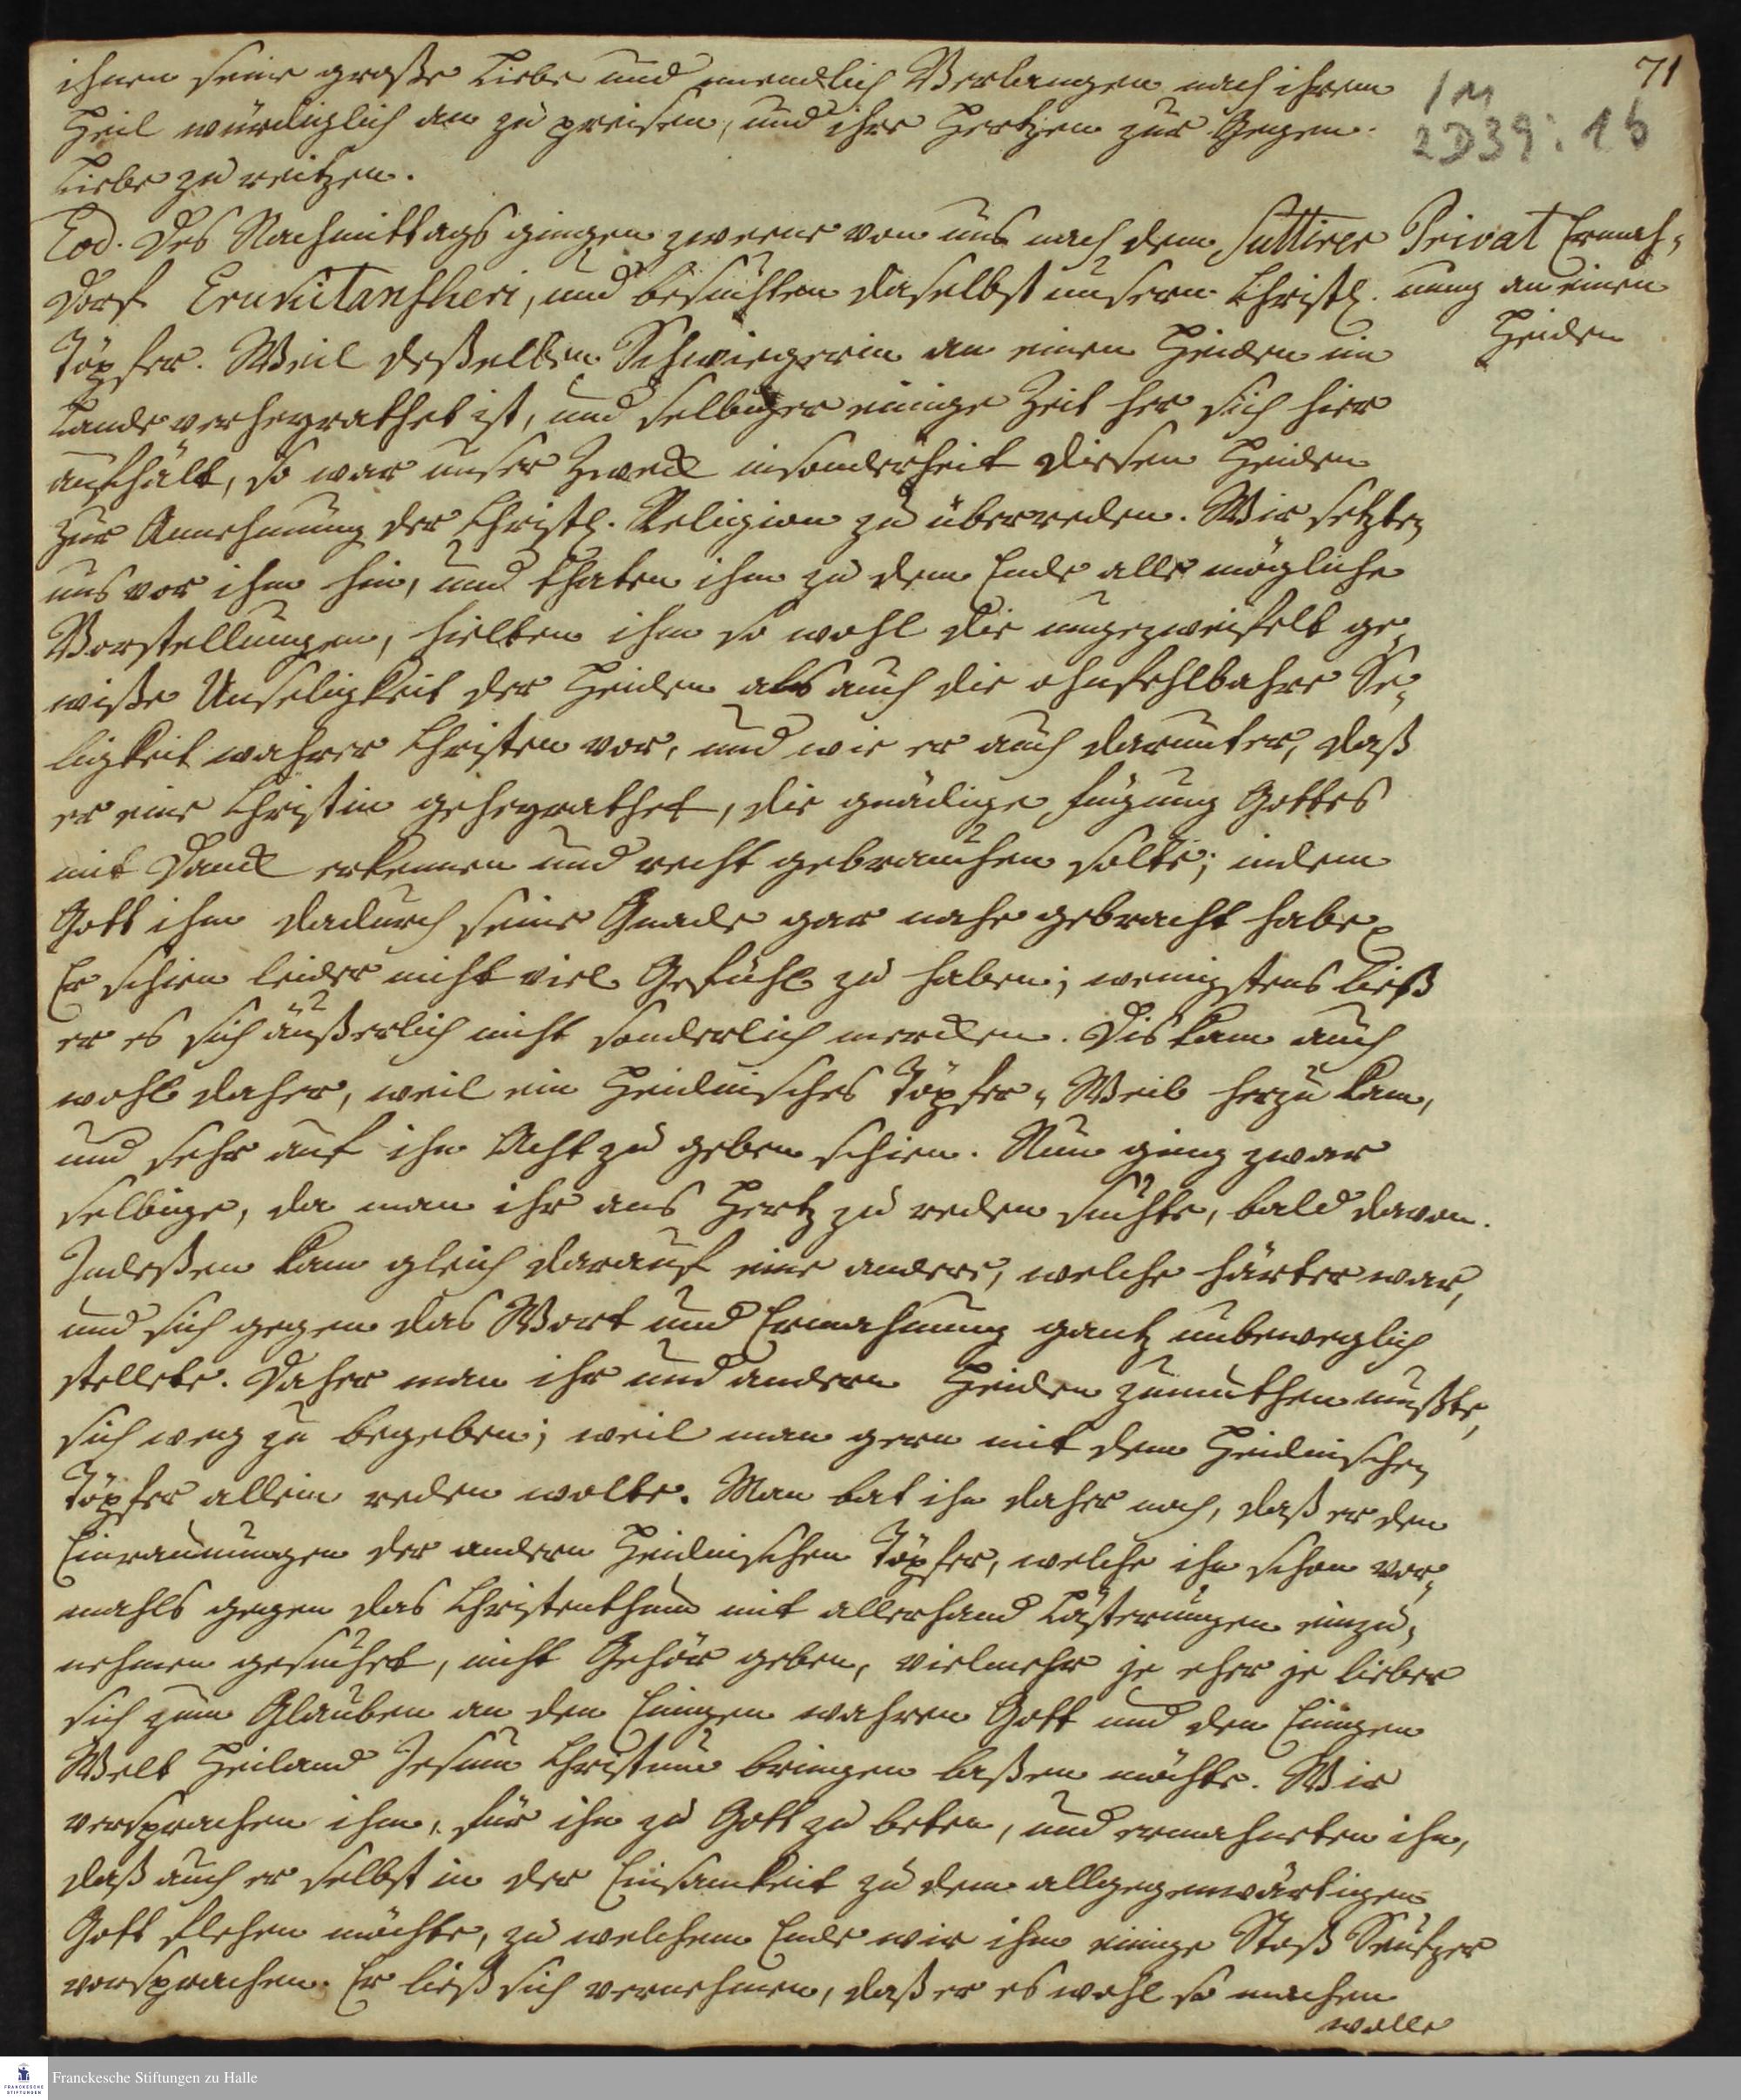 71
1 M
2 D 39 : 16
ihnen seine große Liebe und unendlich Verlangen nach ihrem
Heil würdiglich an zu preisen, und ihre Hertzen zur Gegen-
Liebe zu reitzen.
Eod. Des Nachmittags gingen zweene von uns nach dem Suttirer
Dorf Erukitanscheri, und besuchten daselbst unsern Christl.
Töpfer. Weil deßelben Schwiegerin an einen Heiden im
Lande verheyrathet ist, und selbiger einige Zeit her sich hier
aufhält, so war unser Zweck insonderheit diesen Heiden
zur Annehmung der Christl. Religion zu überreden. Wir setzten
uns vor ihm hin, und thaten ihm zu dem Ende alle mögliche
Vorstellungen, hielten ihm so wohl die ungezweifelt ge-
wiße Unseligkeit der Heiden als auch die ohnfehlbahre Se-
ligkeit wahrer Christen vor, und wie er auch darunter, daß
er eine Christin geheyrathet, die gnädige Fügung Gottes
mit Danck erkennen und recht gebrauchen solte; indem
Gott ihm dadurch seine Gnade gar nahe gebracht habe.
Er schien leider nicht viel Gefühl zu haben; wenigstens ließ
er es sich äußerlich nicht sonderlich mercken. Dis kam auch
wohl daher, weil ein Heidnisches Töpfer-Weib herzu kam,
und sehr auf ihn Acht zu geben schien. Nun ging zwar
selbige, da man ihr ans Hertz zu reden suchte, bald davon.
Indeßen kam gleich darauf eine andere, welche härter war,
und sich gegen das Wort und Ermahnung gantz unbeweglich
stellete. Daher man ihr und andern Heiden zumuthen mußte,
sich weg zu begeben; weil man gern mit dem Heidnischen
Töpfer allein reden wolte. Man bat ihn daher noch, daß er den
Einraunungen der andern Heidnischen Töpfer, welche ihn schon vor-
mahls gegen das Christenthum mit allerhand Lästerungen einzu-
nehmen gesuchet, nicht Gehör geben, vielmehr je eher je lieber
sich zum Glauben an den Einigen wahren Gott und den Einigen
Welt Heiland Jesum Christum bringen laßen möchte. Wir
versprachen ihm, für ihn zu Gott zu beten, und ermahneten ihn,
daß auch er selbst in der Einsamkeit zu dem allgegenwärtigen
Gott flehen möchte, zu welchem Ende wir ihm einige Stoß Seufzer
vorsprachen. Er ließ sich vernehmen, daß er es wohl so machen
wolle
Privat Ermah-
nung an einen
Heiden
Franckesche Stiftungen zu Halle
FRANCKESCHE
STIFTUNGEN